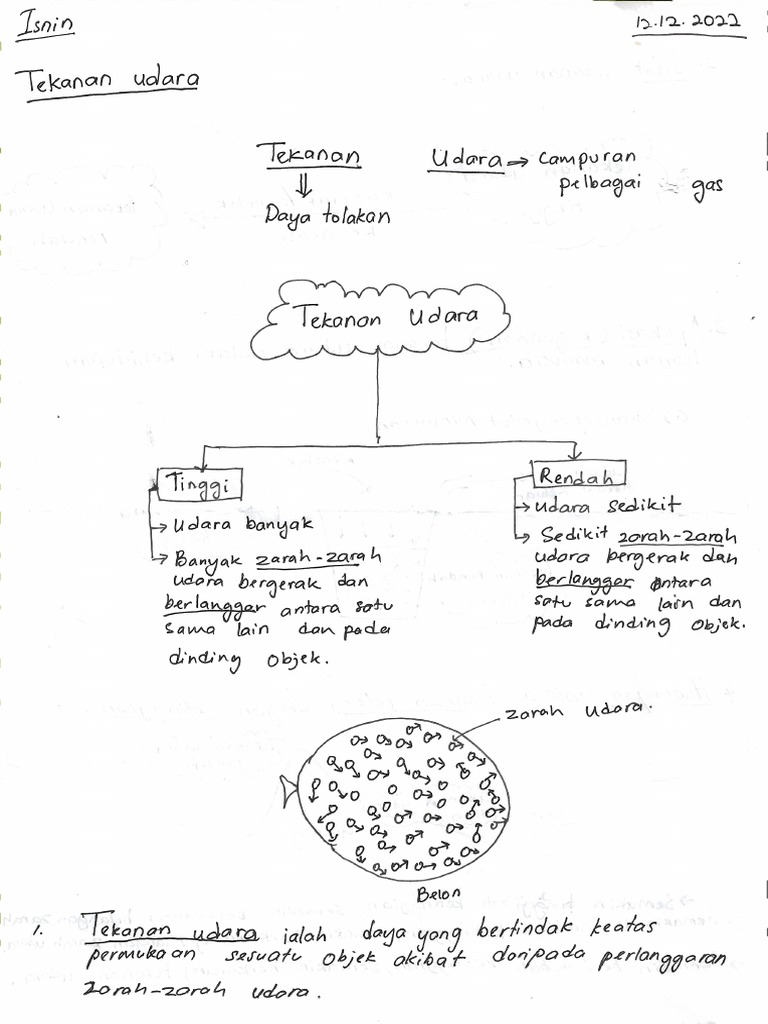 Isnin
12.12.2022
Tekanan udara
Tekanan
Daya tolakan
Udara → campuran
pelbagai gas
Tekanan Udara
Tinggi
→ Udara banyak
→ Banyak zarah-zarah
udara bergerak dan
berlanggar antara satu
sama lain dan pada
dinding objek.
Rendah
→ udara sedikit
→ Sedikit zarah-zarah
udara bergerak dan
berlanggar antara
satu sama lain dan
pada dinding objek.
zarah udara.
Belon
1. Tekanan udara ialah daya yang bertindak keatas
permukaan sesuatu objek akibat daripada perlanggaran
zarah-zarah udara.